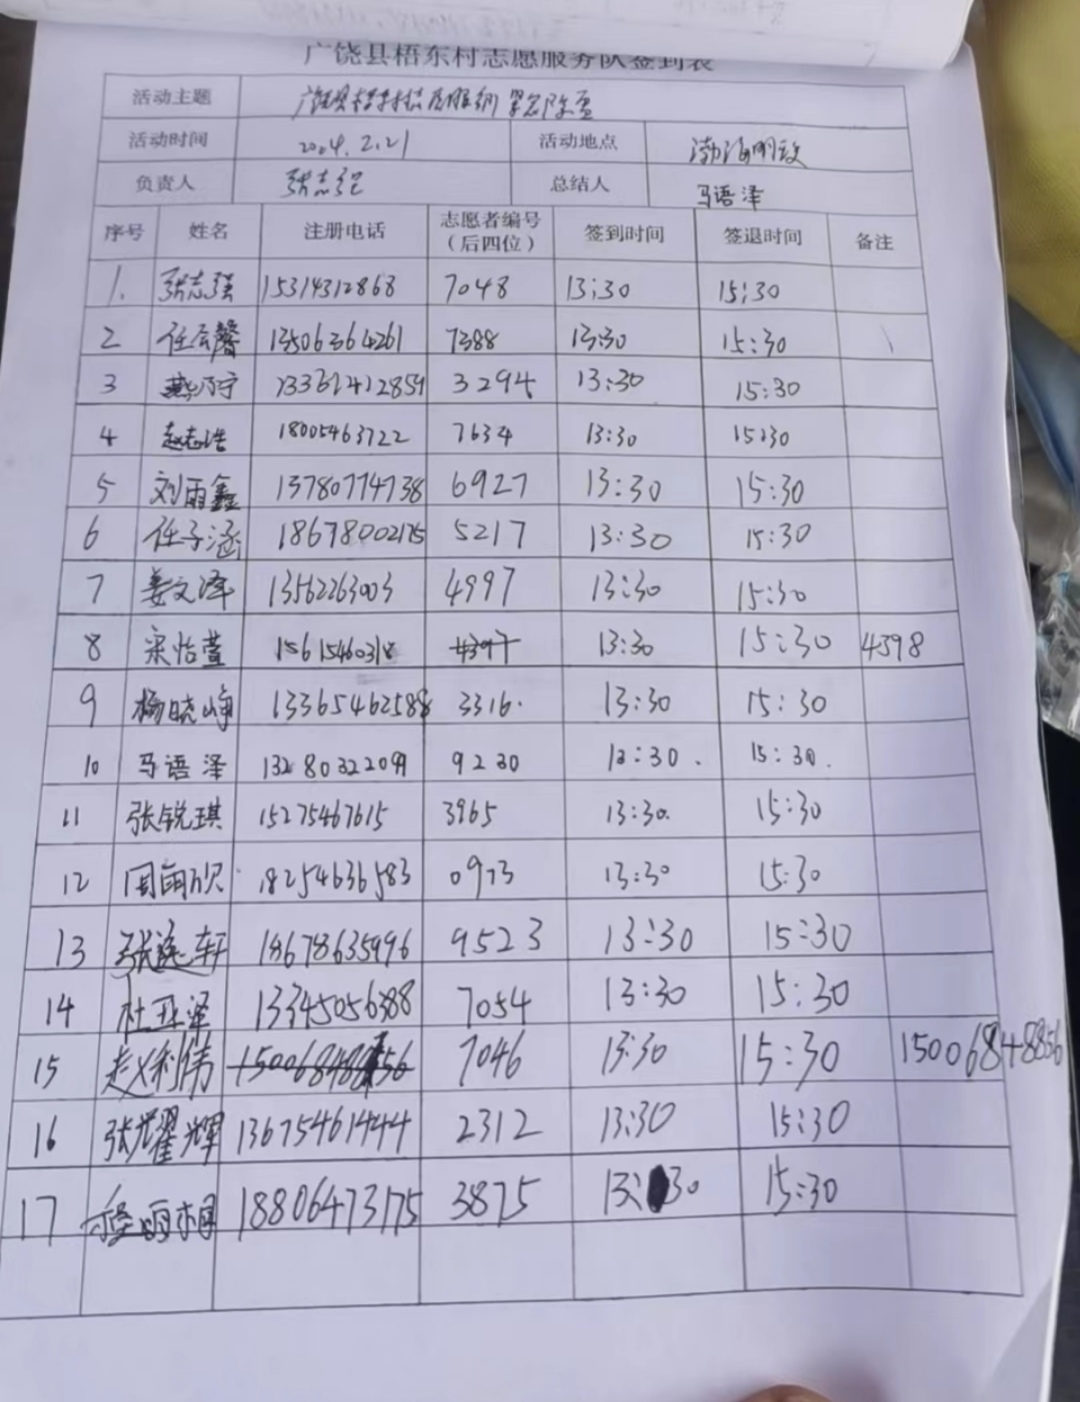 广饶县梧东村志愿服务队签到表
活动主题 广饶县梧东村志愿服务队
活动时间 2024.2.21 活动地点 渤海明政
负责人 张志强 总结人 马语泽
序号 姓名 注册电话 志愿者编号（后四位） 签到时间 签退时间 备注
1. 张志强 15314312868 7048 13:30 15:30
2 任云馨 13506364261 7388 13:30 15:30
3 13361412859 3294 13:30 15:30
4 赵志浩 18005463722 7634 13:30 15:30
5 刘雨鑫 13780774738 6927 13:30 15:30
6 任子涵 18678002175 5217 13:30 15:30
7 姜文泽 13562263003 4997 13:30 15:30
8 梁怡萱 15615460318 4397 13:30 15:30 4398
9 杨晓峥 13365462588 3316. 13:30 15:30
10 马语泽 13280322099 9230 13:30. 15:30.
11 张锐琪 15275467615 3965 13:30. 15:30
12 周雨欣 18254636583 0973 13:30 15:30
13 张逸轩 18678635996 9523 13:30 15:30
14 杜玉泽 13345056388 7054 13:30 15:30
15 赵义利伟 15006848856 7046 13:30 15:30 15006848856
16 张耀辉 13675461444 2312 13:30 15:30
17 雨桐 18806473175 3875 13:30 15:30